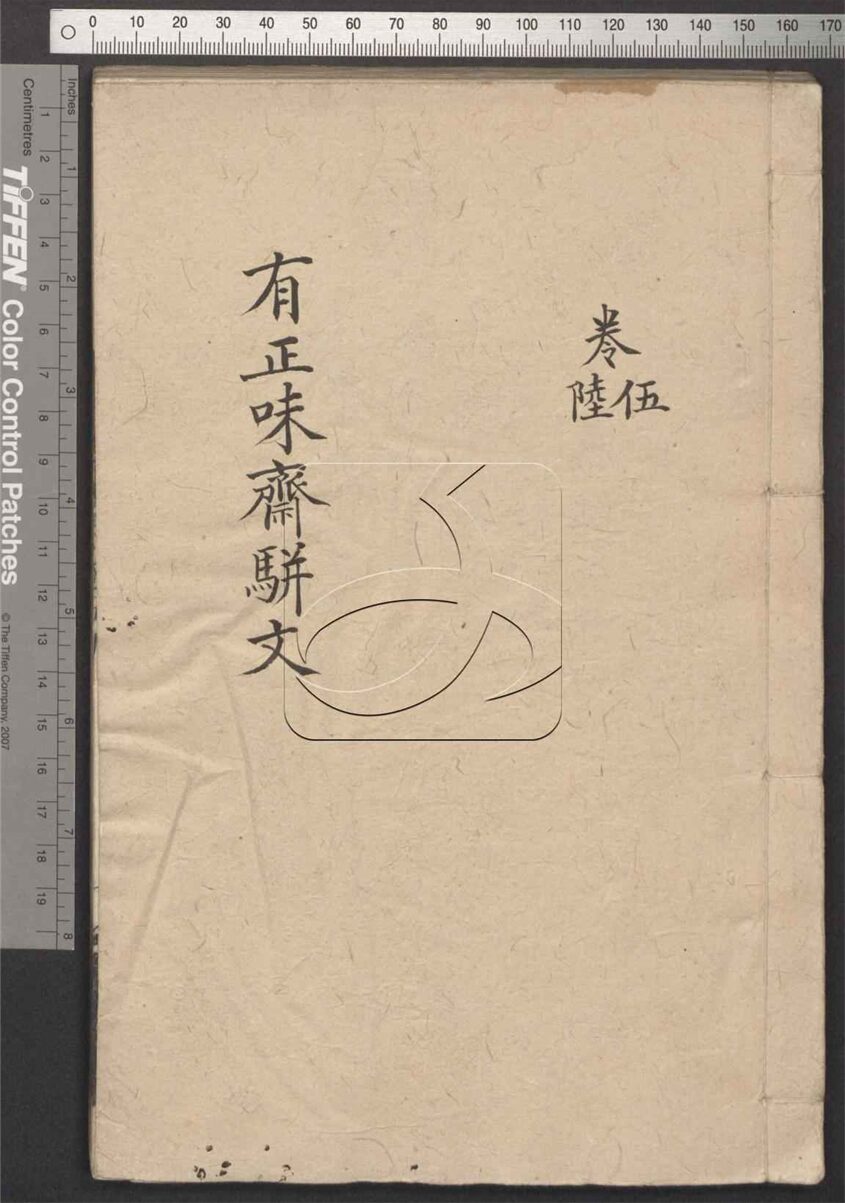 0 10 20 30 40 50 60 70 80 90 100 110 120 130 140 150 160 170
Inches
1 2 3 4 5 6 7 8
Centimetres
1 2 3 4 5 6 7 8 9 10 11 12 13 14 15 16 17 18 19
TIFFEN® Color Control Patches
© The Tiffen Company, 2007
卷伍
陸
有正味齋駢文